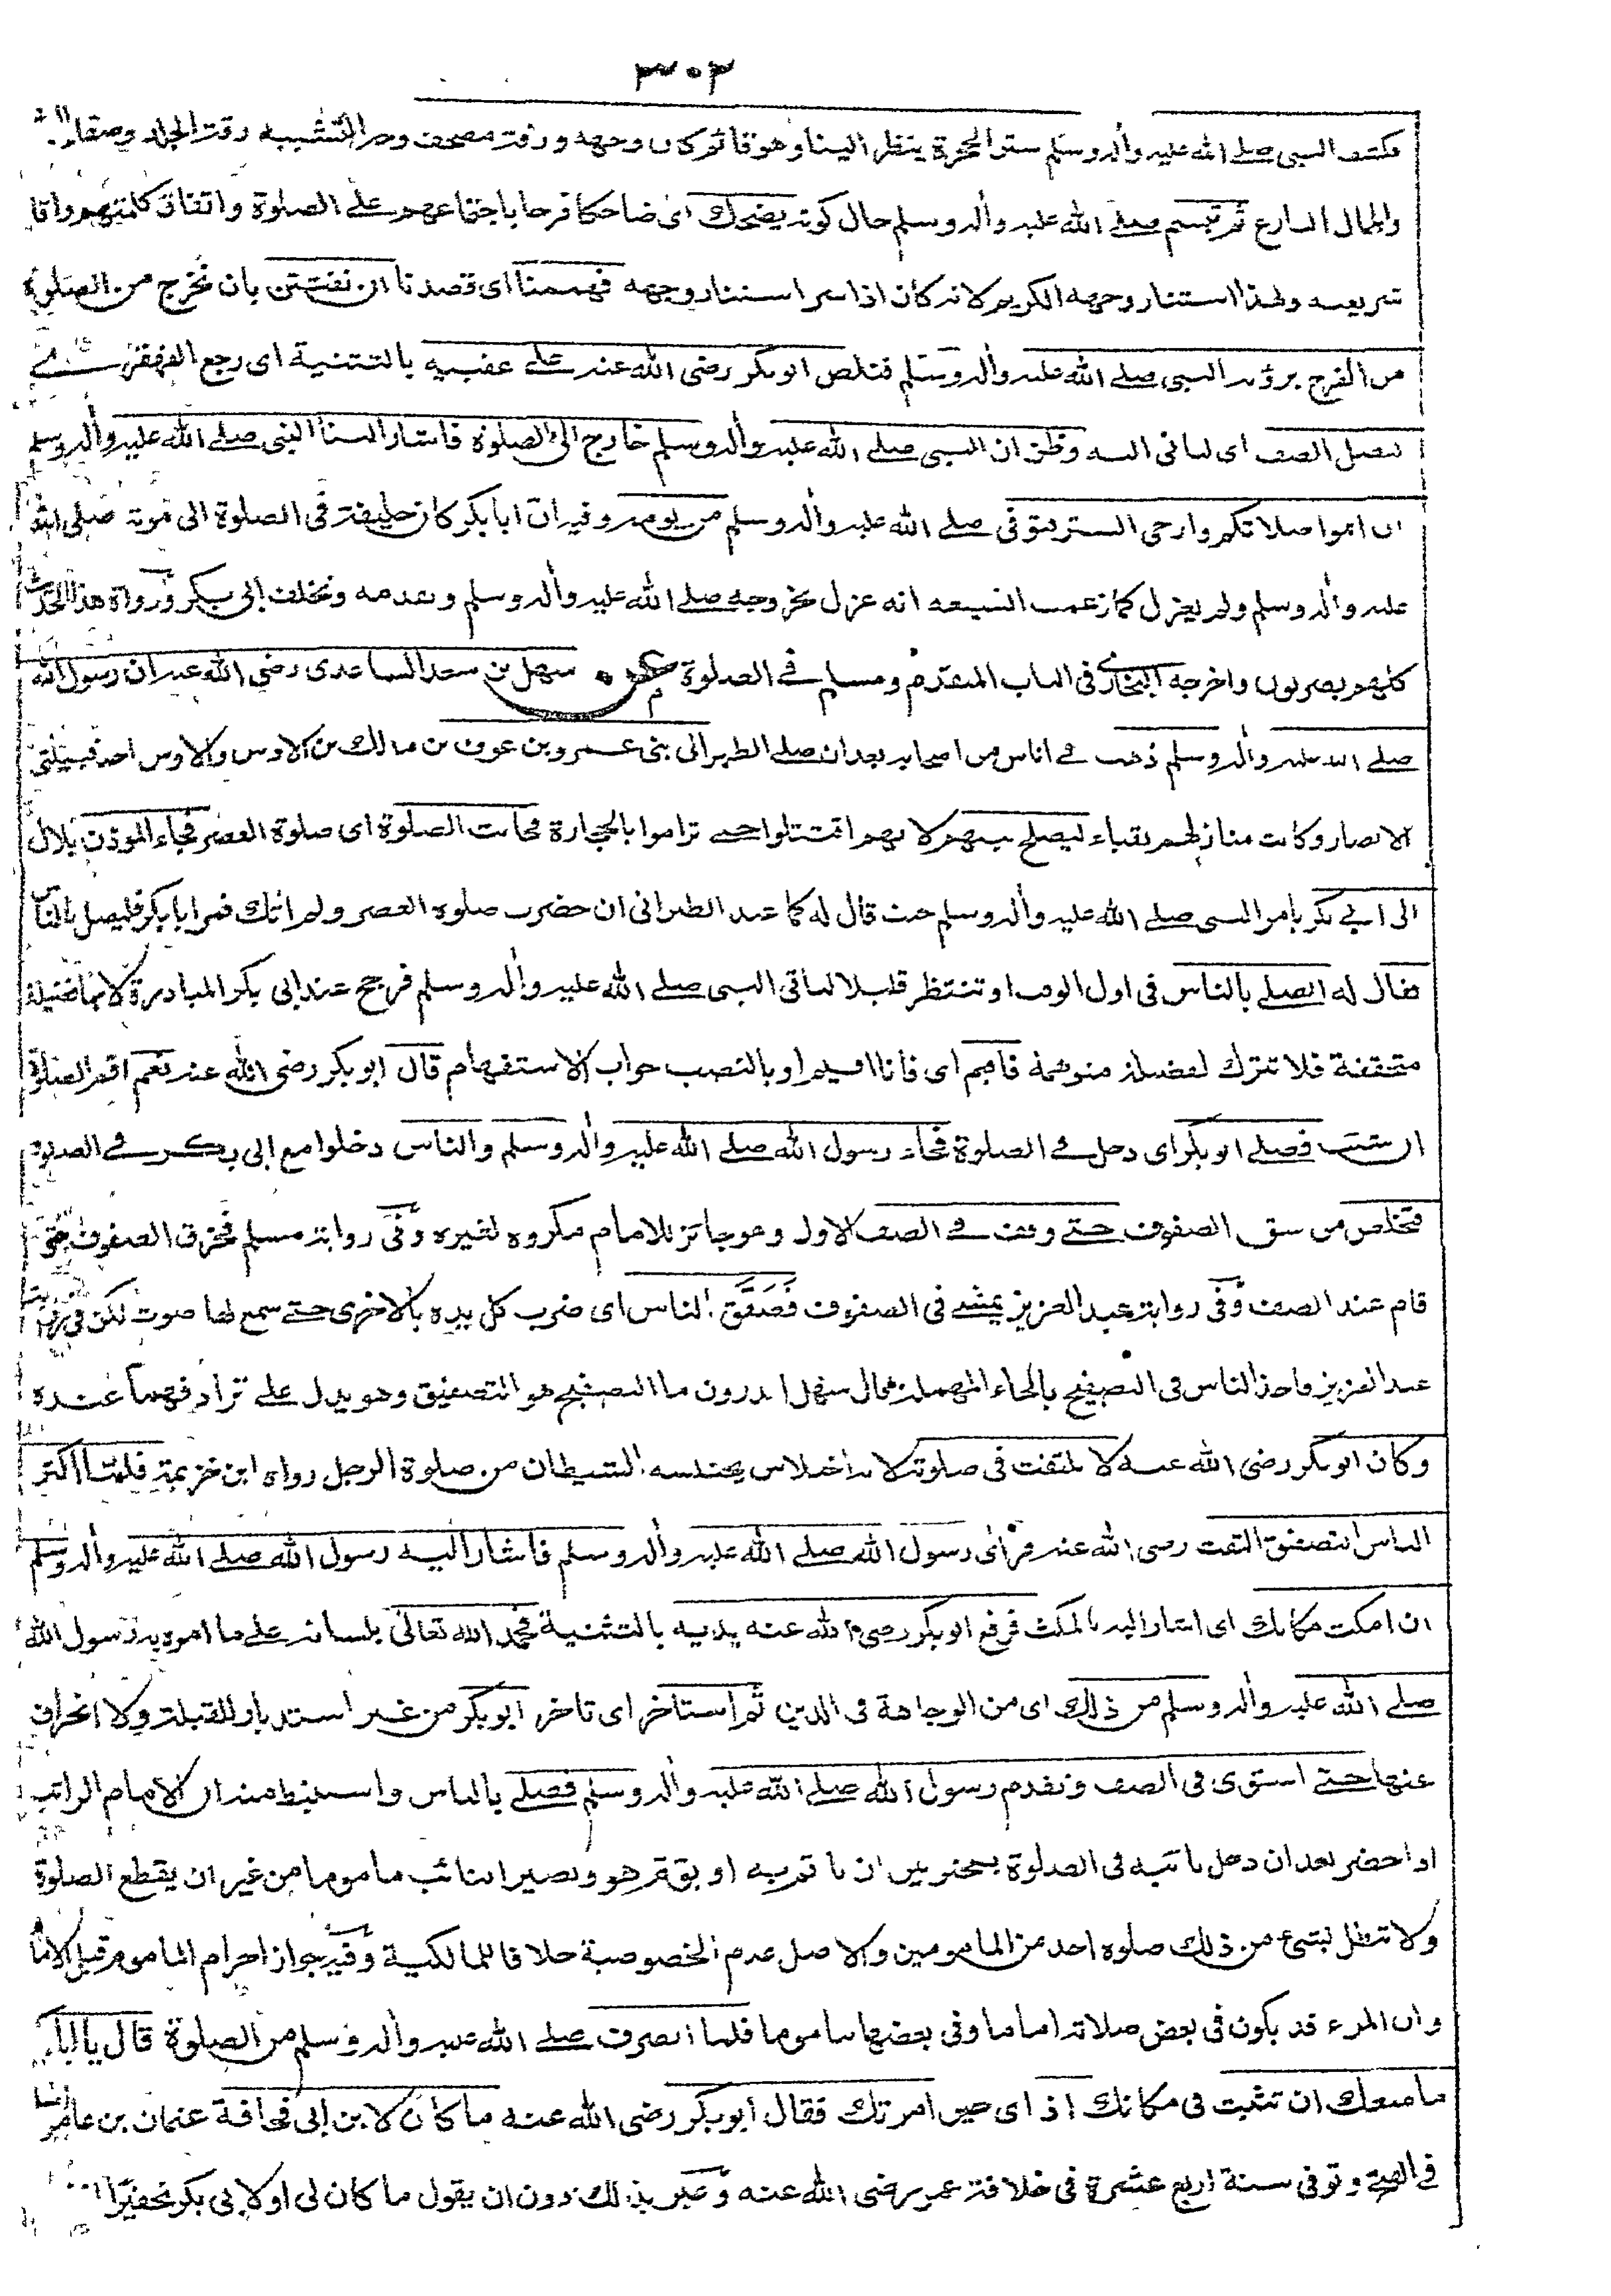 ٣٠٣
فكشف النبى صلے الله عليه وأله وسلم ستر الحجرة ينظر الينا وهو قائم كان وجهه ورقة مصحف وجه التشبيه رقة الجلد وصفاء
والجمال البارع ثم تبسم صلے الله عليه وأله وسلم حال كونه يضحك اى ضاحكا فرحا باجتماعهم علے الصلوة واتفاق كلمتهم واقا
شريعته ولهذا استنار وجهه الكريم لانه كان اذا سر استنار وجهه فهممنا اى قصدنا ان نفتتن بان نخرج من الصلوة
من الفرح برؤية النبى صلے الله عليه وأله وسلم فنكص ابو بكر رضى الله عنه علے عقبيه بالتثنية اى رجع القهقرى
ليصل الصف اى لياتى اليه وظن ان النبى صلے الله عليه وأله وسلم خارج الى الصلوة فاشار الينا النبى صلے الله عليه وأله وسلم
ان اتموا صلاتكم وارخى الستر فتوفى صلے الله عليه وأله وسلم من يومه وفيه ان ابا بكر كان خليفة فى الصلوة الى موته صلى الله
عليه وأله وسلم ولم يعزل كما زعمت الشيعه انه عزل بخروجه صلے الله عليه وأله وسلم وتقدمه وتخلف ابى بكر ورواة هذا الحديث
كلهم بصريون واخرجه البخارى فى الباب المتقدم ومسلم فے الصلوة عن سهل بن سعد الساعدى رضى الله عنه ان رسول الله
صلے الله عليه وأله وسلم ذهب فے اناس من اصحابه بعد ان صلے الظهر الى بنى عمرو بن عوف بن مالك بن الاوس والاوس احد قبيلتى
الانصار وكانت منازلهم بقباء ليصلح بينهم لانهم اقتتلوا حتے تراموا بالحجارة فحانت الصلوة اى صلوة العصر فجاء المؤذن بلال
الى ابى بكر بامر النبى صلے الله عليه وأله وسلم حيث قال له كما عند الطبرانى ان حضرت صلوة العصر ولم اتك فمر ابا بكر فليصل بالناس
فقال له اتصلے بالناس فى اول الوقت او تنتظر قليلا لياتى النبى صلے الله عليه وأله وسلم فرجح عند ابى بكر المبادرة لانها فضيلة
متحققة فلا تترك لفضيلة متوهمة فاقيم اى فانا اقيم او بالنصب جواب الاستفهام قال ابو بكر رضى الله عنه نعم اقم الصلوة
ان شئت فصلے ابو بكر اى دخل فے الصلوة فجاء رسول الله صلے الله عليه وأله وسلم والناس دخلوا مع ابى بكر فے الصلوة
فتخلص من شق الصفوف حتے وقف فے الصف الاول وهو جائز للامام مكروه لغيره وفى رواية مسلم فخرق الصفوف حتى
قام عند الصف وفى رواية عبد العزيز يمشے فى الصفوف فصفق الناس اى ضرب كل يده بالاخرى حتے سمع لها صوت لكن فى رواية
عبد العزيز فاخذ الناس فى التصفيح بالحاء المهملة فقال سهل اتدرون ما التصفيح هو التصفيق وهو يدل علے ترادفهما عنده
وكان ابو بكر رضى الله عنه لا يلتفت فى صلوته لانه اختلاس يختلسه الشيطان من صلوة الرجل رواه ابن خزيمة فلما اكثر
الناس التصفيق التفت رضى الله عنه فراى رسول الله صلے الله عليه وأله وسلم فاشار اليه رسول الله صلے الله عليه وأله وسلم
ان امكث مكانك اى اشار اليه بالمكث فرفع ابو بكر رضى الله عنه يديه بالتثنية فحمد الله تعالى بلسانه علے ما امره به رسول الله
صلے الله عليه وأله وسلم من ذلك اى من الوجاهة فى الدين ثم استاخر اى تاخر ابو بكر من غير استدبار للقبلة ولا انحراف
عنها حتے استوى فى الصف وتقدم رسول الله صلے الله عليه وأله وسلم فصلے بالناس واستنبط منه ان الامام الراتب
اذا حضر بعد ان دخل نائبه فى الصلوة يتخير بين ان ياتم به او يؤم هو ويصير النائب ماموما من غير ان يقطع الصلوة
ولا تبطل بشئ من ذلك صلوة احد من المامومين والاصل عدم الخصوصية خلافا للمالكية وفيه جواز احرام الماموم قبل الامام
وان المرء قد يكون فى بعض صلاته اماما وفى بعضها ماموما فلما انصرف صلے الله عليه وأله وسلم من الصلوة قال يا ابا
ما منعك ان تثبت فى مكانك اذ اى حين امرتك فقال ابو بكر رضى الله عنه ما كان لابن ابى قحافة عثمان بن عامر
فى الفتح وتوفى سنة اربع عشرة فى خلافة عمر رضى الله عنه وعبر بذلك دون ان يقول ما كان لى او لابى بكر تحقيرا